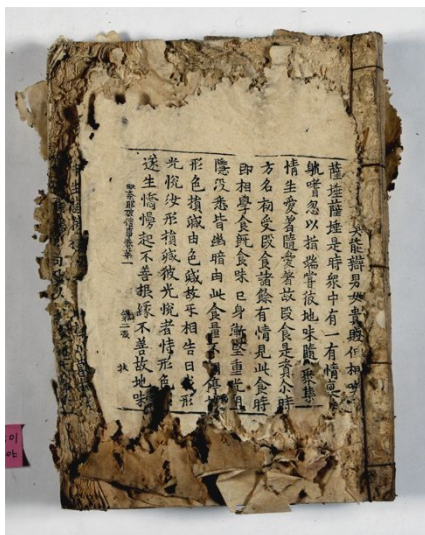 能辯男女貴賤但相
薩埵薩埵是時衆中有一有情
躭嗜忽以指端嘗彼地味隨
情生愛著隨愛著故段食是資尒時
方名初受段食諸餘有情見此食時
即相學食旣食味已身漸堅重光明
隱没悉皆幽暗由此食量不調停
形色損減由色減故互相告曰我形
光悅汝形損減彼光悅者恃形色
遂生憍慢起不善根緣不善故地味
毗奈耶破僧事卷第一